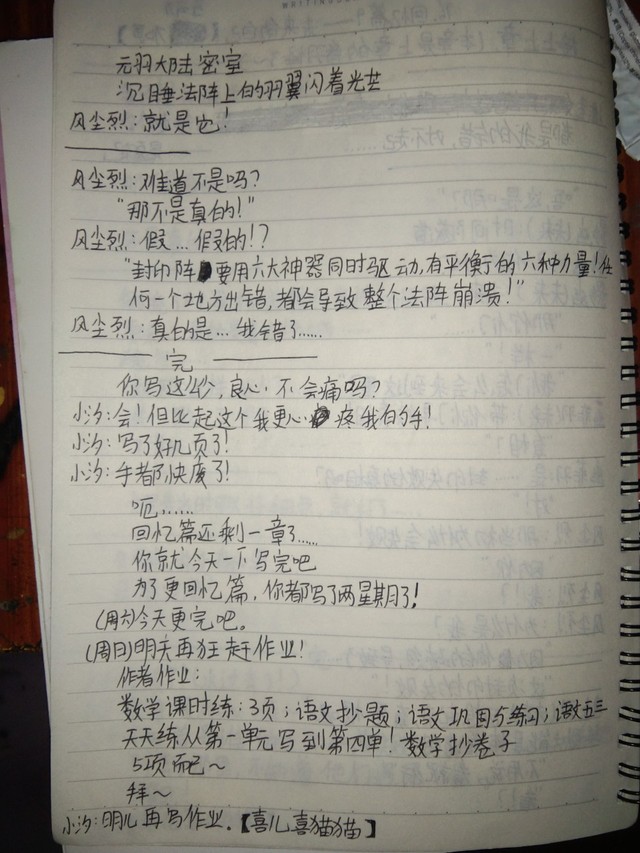 元羽大陆密室
沉睡法阵上的羽翼闪着光芒
风尘烈:就是它!
风尘烈:难道不是吗?
"那不是真的!"
风尘烈:假…假的!?
"封印阵要用六大神器同时驱动,有平衡的六种力量!任
何一个地方出错,都会导致整个法阵崩溃!"
风尘烈:真的是…我错了……
完
你写这么少,良心不会痛吗?
小汐:会!但比起这个我更心疼我的手!
小汐:写了好几页了!
小汐:手都快废了!
呃……
回忆篇还剩一章了……
你就今天一下写完吧
为了更回忆篇,你都写了两星期了!
(周六)今天更完吧。
(周日)明天再狂赶作业!
作者作业:
数学课时练:3页;语文抄题;语文巩固与练习;语文五三
天天练从第一单元写到第四单!数学抄卷子
5项而已~
拜~
小汐:明儿再写作业.【喜儿喜猫猫】